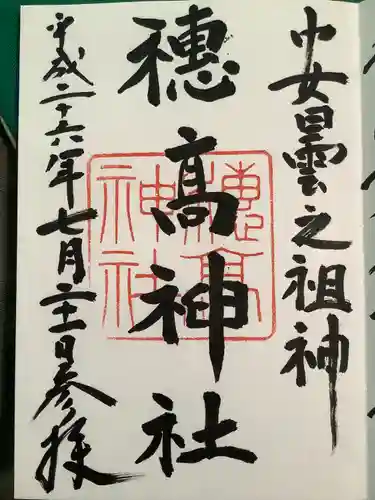 安曇之祖神
穂髙神社
平成二十六年七月二十一日参拝
穗高
神社